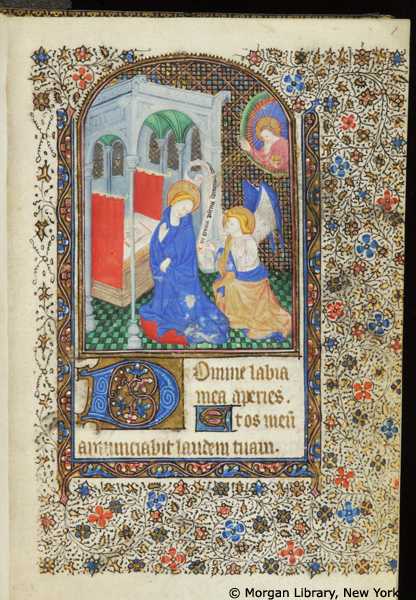 Domine labia
mea aperies.
Et os meū
annunciabit laudem tuam.
© Morgan Library, New York